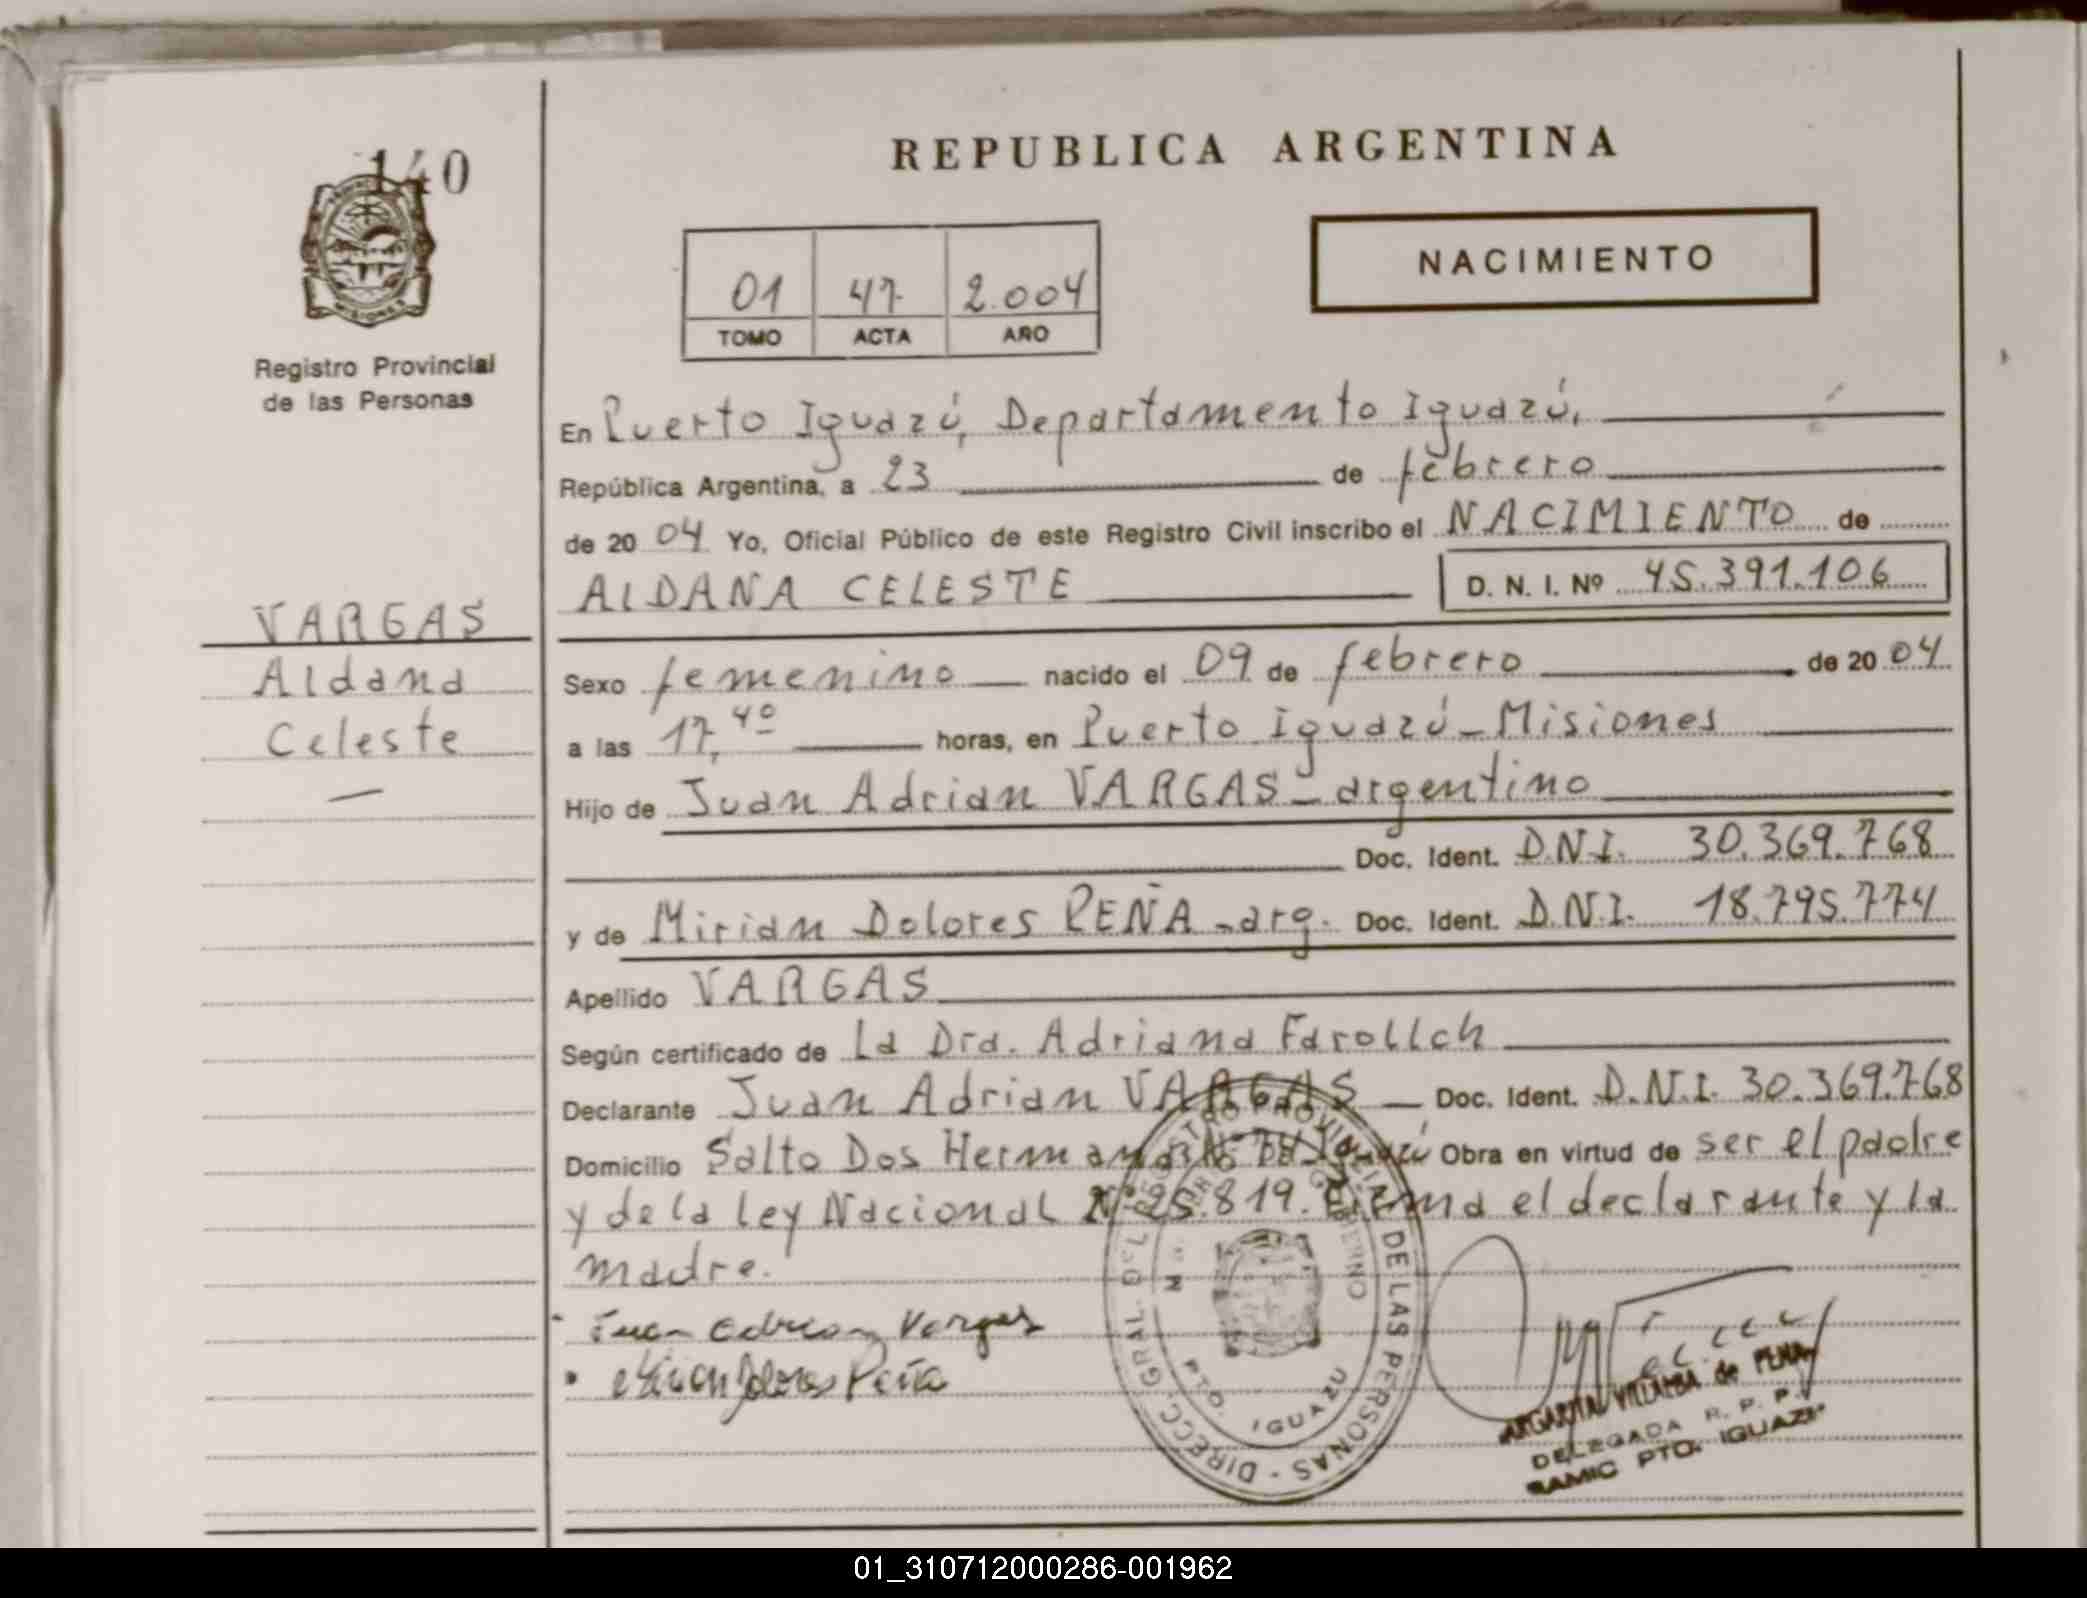 140
REPUBLICA ARGENTINA
NACIMIENTO
01 47 2.004
TOMO ACTA AÑO
Registro Provincial
de las Personas
En Puerto Iguazú, Departamento Iguazú,
República Argentina, a 23 de febrero
de 20 04 Yo, Oficial Público de este Registro Civil inscribo el NACIMIENTO de
ALDANA CELESTE D. N. I. Nº 45.391.106
VARGAS
Aldana
Celeste
Sexo femenino nacido el 09 de febrero de 20 04
a las 17,40 horas, en Puerto Iguazú - Misiones
Hijo de Juan Adrian VARGAS - argentino
Doc. Ident. D.N.I. 30.369.768
y de Mirian Dolores PEÑA - arg. Doc. Ident. D.N.I. 18.795.774
Apellido VARGAS
Según certificado de La Dra. Adriana Farollch
Declarante Juan Adrian VARGAS Doc. Ident. D.N.I. 30.369.768
Domicilio Salto Dos Hermanas Iguazú Obra en virtud de ser el padre
y de la ley Nacional Nº 25.819. Firma el declarante y la
madre.
Juan Adrian Vargas
Mirian Dolores Peña
DIRECC. GRAL. DEL REGISTRO PROVINCIAL DE LAS PERSONAS
PTO. IGUAZU
VILLALBA de PEÑA
DELEGADA R. P. P.
SAMIC PTO. IGUAZU
01_310712000286-001962